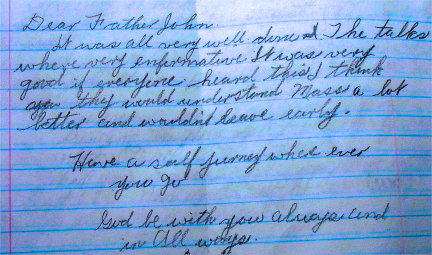 Dear Father John.
It was all very well done & The talks
where very enformative It was very
good if everyone heard this I think
you they would understand Mass a lot
better and wouldn't leave early.
Have a safe jurney wher ever
you go
God be with you always and
in All ways.